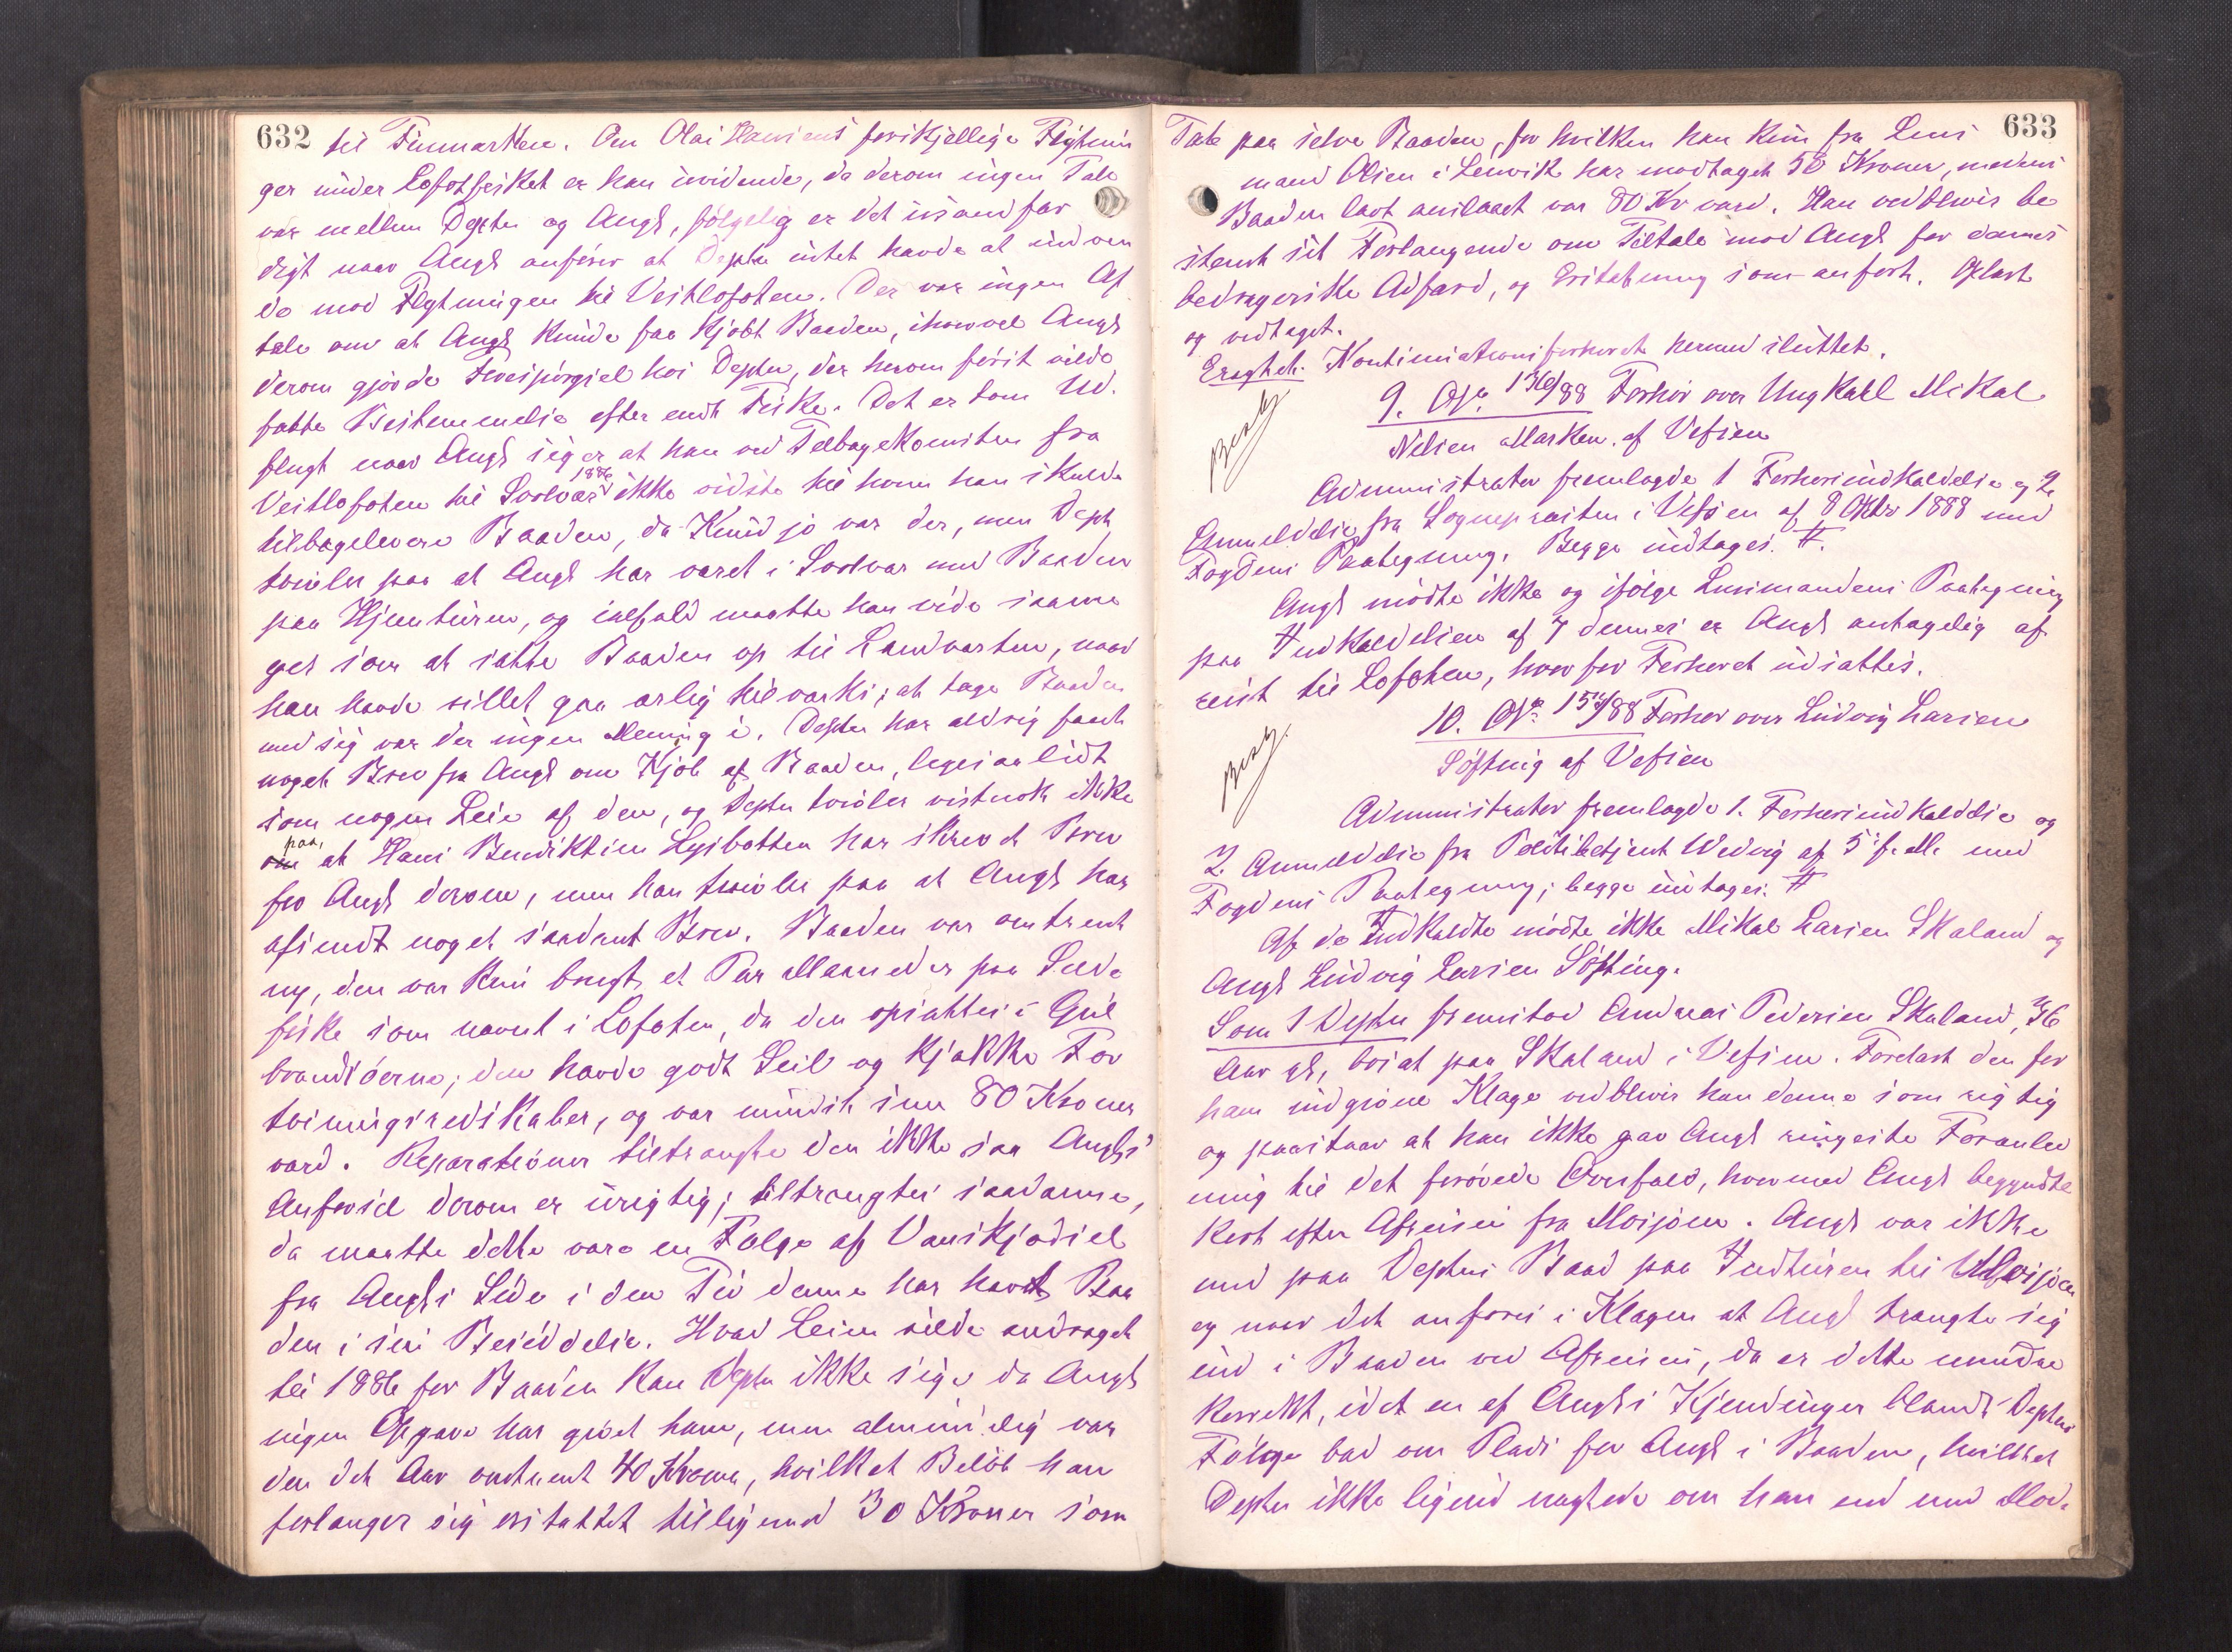 632
til Finmarken. Om Olai Hansens forskjellige Flytnin
ger under Lofotfisket er han uvidende, da derom ingen Tale
var mellem Depten og Angk, følgelig er det usandfær
digt naar Angk anfører at Depten intet havde at indven
de mod Flytningen til Vestlofoten. Der var ingen Af
tale om at Angk kunde faa kjøbt Baaden, ihvorvel Angk
derom gjorde Forespørgsel hos Depten, der herom først vilde
fatte Bestemmelse efter endt Fiske. Det er tom Ud.
flugt naar Angk siger at han ved Tilbagekomsten fra
Vestlofoten til Svolvær 1886 ikke vidste til hvem han skulde
tilbagelevere Baaden, da Knud jo var der, men Dept
tviler paa at Angk har været i Svolvær med Baaden
paa Hjemturen, og ialfald maatte han vide saame
get som at sætte Baaden op til Landværten, naar
han havde villet gaa ærlig tilværks; at tage Baaden
med sig var der ingen Mening i. Depten har aldrig faaet
noget Brev fra Angk om Kjøb af Baaden, ligesaalidt
som nogen Leie af den, og Depten tviler vistnok ikke
paa, at Hans Benediktsen Lysbotten har skrevet Brev
for Angk derom, men han tviler paa at Angk har
afsendt noget saadant Brev. Baaden var omtrent
ny, den var kun brugt et Par Maaneder paa Silde
fiske som nævnt i Lofoten, da den opsattes i Gul
brandsøerne; den havde godt Seil og kjække For
tøiningsredskaber, og var mindst sine 80 Kroner
værd. Reparationer tiltrængte den ikke saa Angks
Anførsel derom er urigtig; tiltrængtes saadanne,
da maatte dette være en Følge af Vanskjødsel
fra Angks Side i den Tid denne har havt Baa
den i sin Besiddelse. Hvad Leien vilde andraget
til 1886 for Baaden kan Depten ikke sige da Angk
ingen Opgave har givet ham, men almindelig var
den det Aar omtrent 40 Kroner, hvilket Beløb han
forlanger sig erstattet tilligemed 30 Kroner som
633
Tab paa selve Baaden, for hvilken han kun fra Lens
mand Olsen i Lenvik har modtaget 50 Kroner, medens
Baaden lavt anslaaet var 80 Kr værd. Han vedblev be
stemt sit Forlangende om Tiltale mod Angk for dennes
bedrageriske Adfærd, og Erstatning som anført. Oplæst
og vedtaget.
Eragtet: Kontinuationsforhøret hermed sluttet.
9. O No 136/88 Forhør over Ungkarl Mikal
Nilsen Marken af Vefsen
Administrator fremlagde 1 Forhørsindkaldelse og 2
Anmeldelse fra Sognepresten i Vefsen af 8 Oktbr 1888 med
Fogdens Paategning. Begge indtages. #.
Angk mødte ikke og ifølge Lensmandens Paategning
paa Indkaldelsen af 7 dennes er Angk antagelig af
reist til Lofoten, hvorfor Forhøret udsattes.
10. O No 154/88 Forhør over Ludvig Larsen
Søfting af Vefsen
Administrator fremlagde 1. Forhørsindkaldelse og
2. Anmeldelse fra Politibetjent Wedvig af 5 f. M. med
Fogdens Paategning; begge indtages. #
Af de Indkaldte mødte ikke Mikal Larsen Skaland og
Angk Ludvig Larsen Søfting.
Som 1 Depten fremstod Andreas Pedersen Skaland, 36
Aar gl, bosat paa Skaland i Vefsen. Forelæst den for
ham indgivne Klage vedblev han denne som rigtig
og paastaar at han ikke gav Angk ringeste Foranled
ning til det forøvede Overfald, hvormed Angk begyndte
kort efter Afreisen fra Mosjøen. Angk var ikke
med paa Deptens Baad paa Indturen til Mosjøen
og naar det anføres i Klagen at Angk trængte sig
ind i Baaden ved Afreisen, da er dette mindre
korrekt, idet en af Angks Kjendinger blandt Deptens
Følge bad om Plads for Angk i Baaden, hvilket
Depten ikke ligend nægtede om han end med Mod-